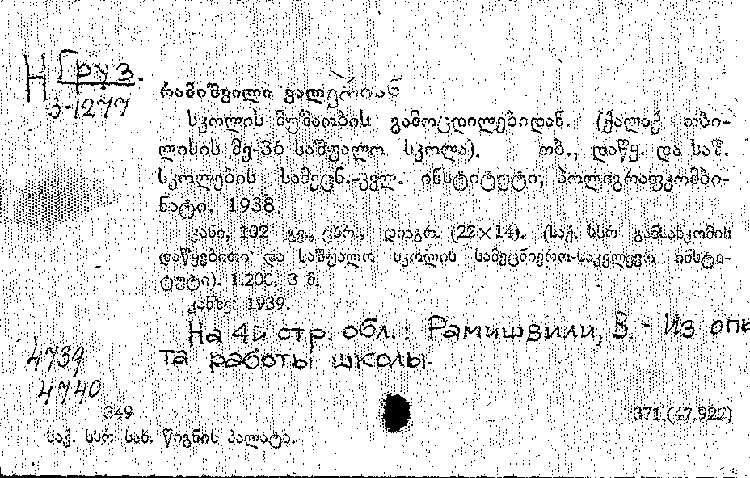 Н Груз.
3-1277
რამიშვილი ვალერიან
სკოლის მუშაობის გამოცდილებიდან. (ქალაქ თბი-
ლისის მე-36 საშუალო სკოლა). თბ., დაწყ. და საშ.
სკოლების სამეცნ.-კვლ. ინსტიტუტი, პოლიგრაფკომბი-
ნატი, 1938.
ყასი, 102 გვ., დიაგრ. (22×14). (საქ. სსრ განსახკომის
დაწყებითი და საშუალო სკოლის სამეცნიერო-საკვლევი ინსტი-
ტუტი). 1.200. 3 მ.
ყანზე 1939.
На 4й стр. обл.: Рамишвили, В. - Из опы
та работы школы.
4739
4740
349 371.(47.922)
საქ. სსრ სახ. წიგნის პალატა.